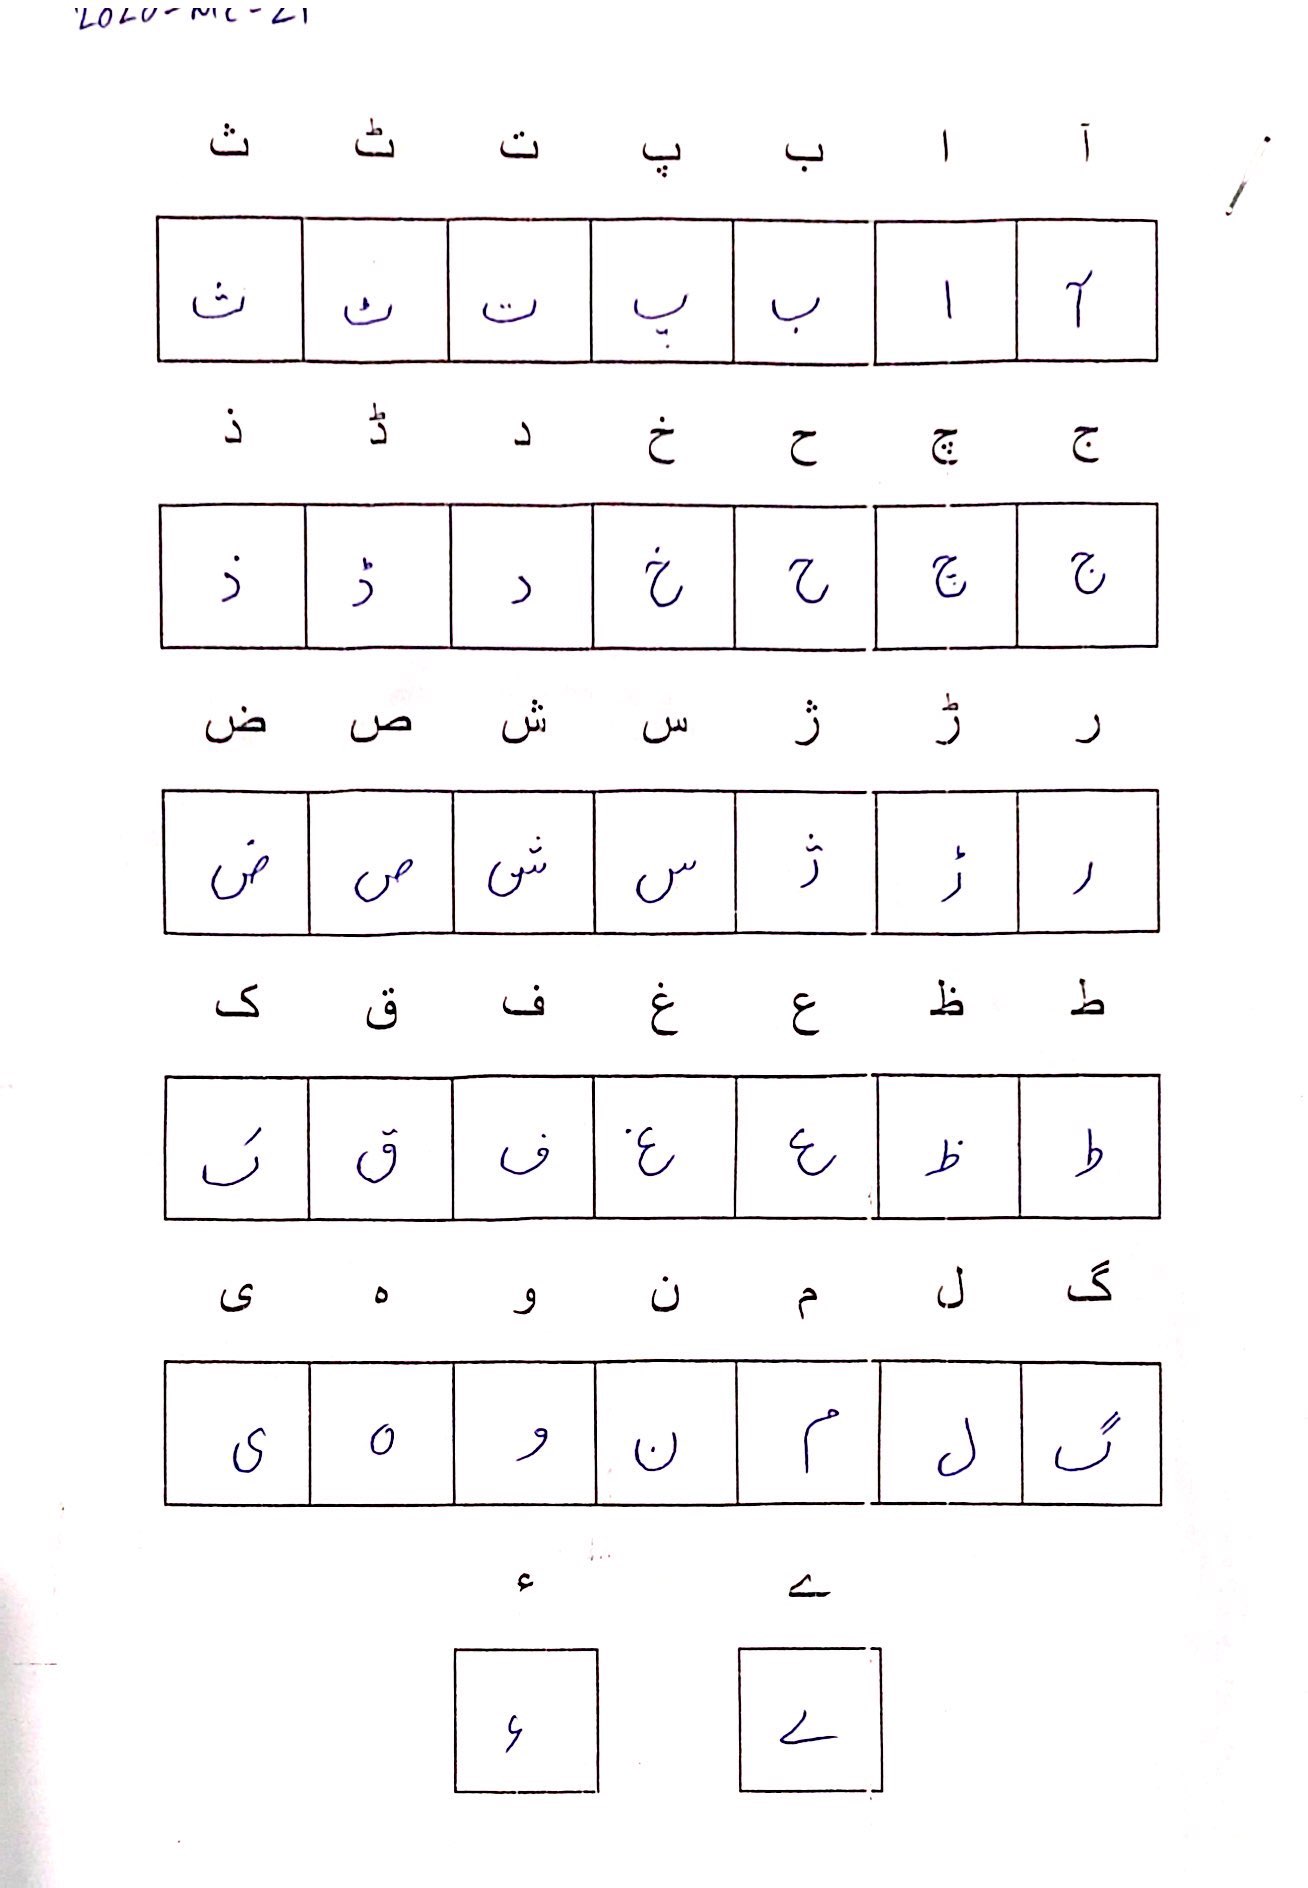 آ ا ب پ ت ٹ ث
آ ا ب پ ت ٹ ث
ج چ ح خ د ڈ ذ
ج چ ح خ د ڈ ذ
ر ڑ ژ س ش ص ض
ر ڑ ژ س ش ص ض
ط ظ ع غ ف ق ک
ط ظ ع غ ف ق ک
گ ل م ن و ہ ی
گ ل م ن و ہ ی
ے ء
ے ء